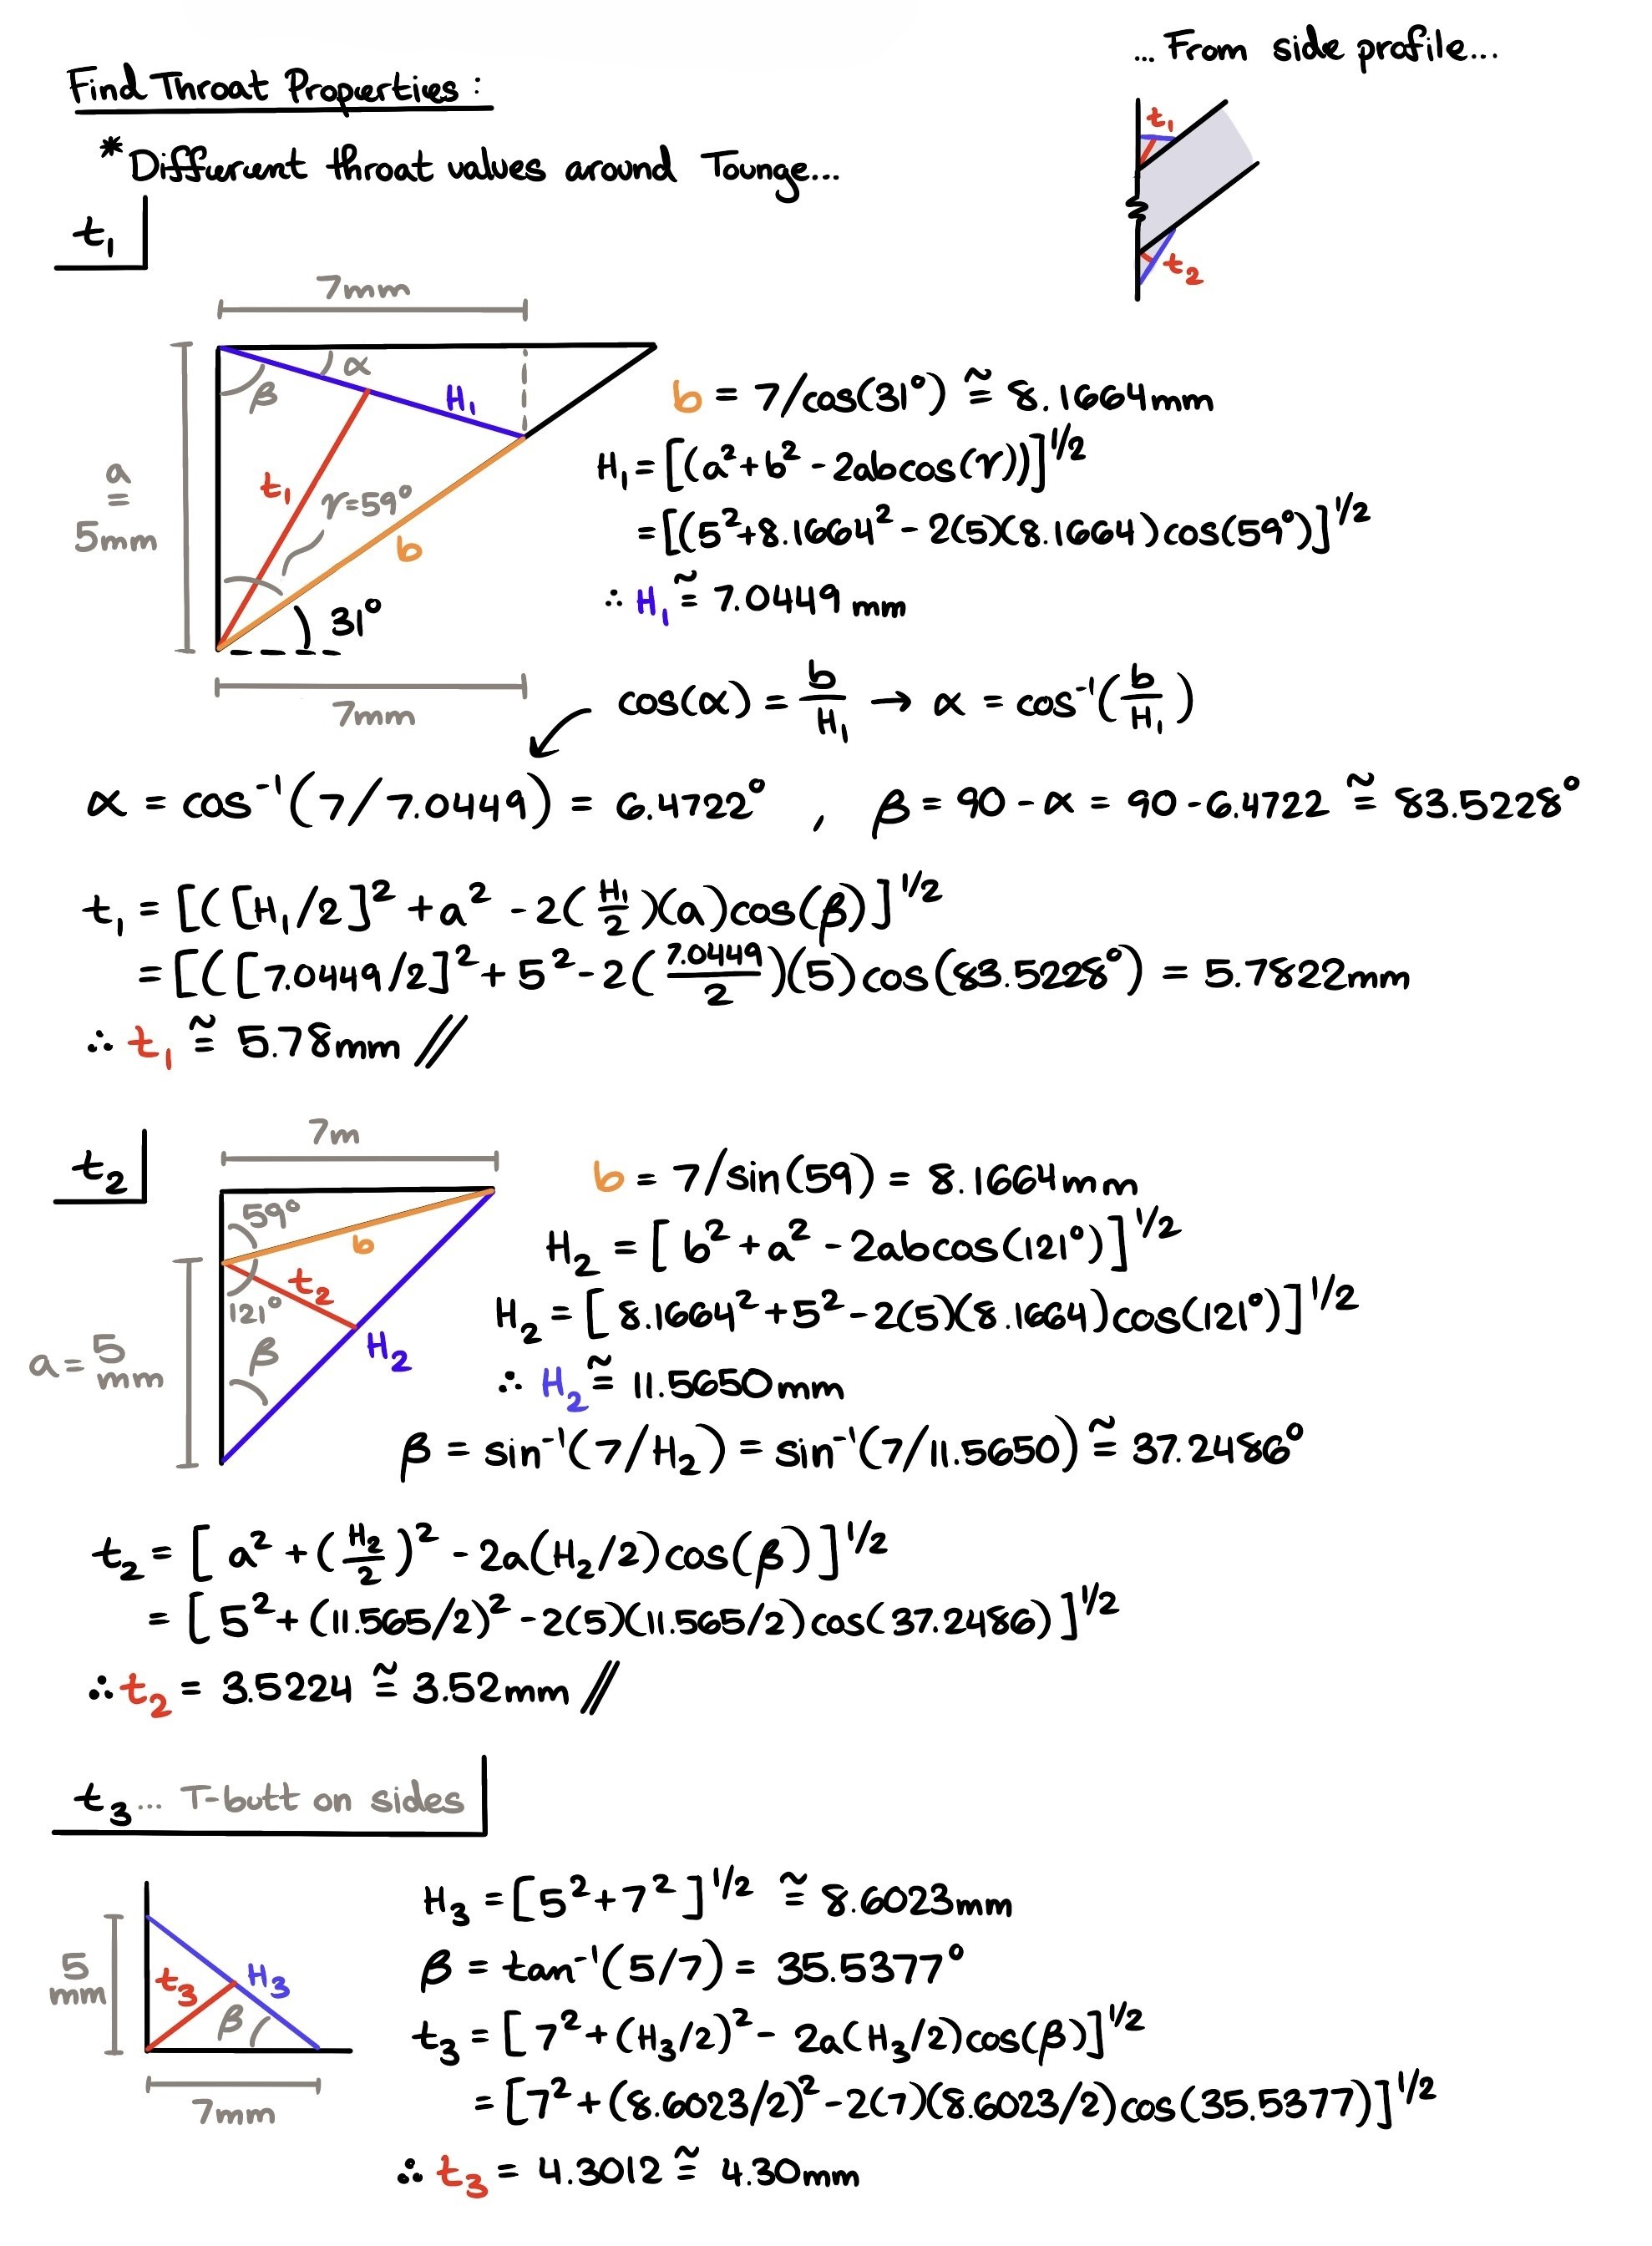 ... From side profile...
Find Throat Properties :
*Different throat values around Tounge...
t₁
t₂
t₁
7mm
α
β
H₁
a
=
5mm
t₁
γ=59°
b
31°
7mm
b = 7/cos(31°) ≅ 8.1664mm
H₁ = [(a²+b² - 2abcos(γ))]^1/2
= [(5²+8.1664² - 2(5)(8.1664)cos(59°)]^1/2
∴ H₁ ≅ 7.0449 mm
cos(α) = b/H₁ → α = cos⁻¹(b/H₁)
α = cos⁻¹(7/7.0449) = 6.4722° , β = 90 - α = 90 - 6.4722 ≅ 83.5228°
t₁ = [([H₁/2]² + a² - 2(H₁/2)(a)cos(β)]^1/2
= [([7.0449/2]² + 5² - 2(7.0449/2)(5)cos(83.5228°) = 5.7822mm
∴ t₁ ≅ 5.78mm //
t₂
7m
59°
b
t₂
121°
β
H₂
a = 5
mm
b = 7/sin(59) = 8.1664mm
H₂ = [b² + a² - 2abcos(121°)]^1/2
H₂ = [8.1664² + 5² - 2(5)(8.1664)cos(121°)]^1/2
∴ H₂ ≅ 11.5650mm
β = sin⁻¹(7/H₂) = sin⁻¹(7/11.5650) ≅ 37.2486°
t₂ = [a² + (H₂/2)² - 2a(H₂/2)cos(β)]^1/2
= [5² + (11.565/2)² - 2(5)(11.565/2)cos(37.2486)]^1/2
∴ t₂ = 3.5224 ≅ 3.52mm //
t₃... T-butt on sides
5
mm
t₃
H₃
β
7mm
H₃ = [5² + 7²]^1/2 ≅ 8.6023mm
β = tan⁻¹(5/7) = 35.5377°
t₃ = [7² + (H₃/2)² - 2a(H₃/2)cos(β)]^1/2
= [7² + (8.6023/2)² - 2(7)(8.6023/2)cos(35.5377)]^1/2
∴ t₃ = 4.3012 ≅ 4.30mm